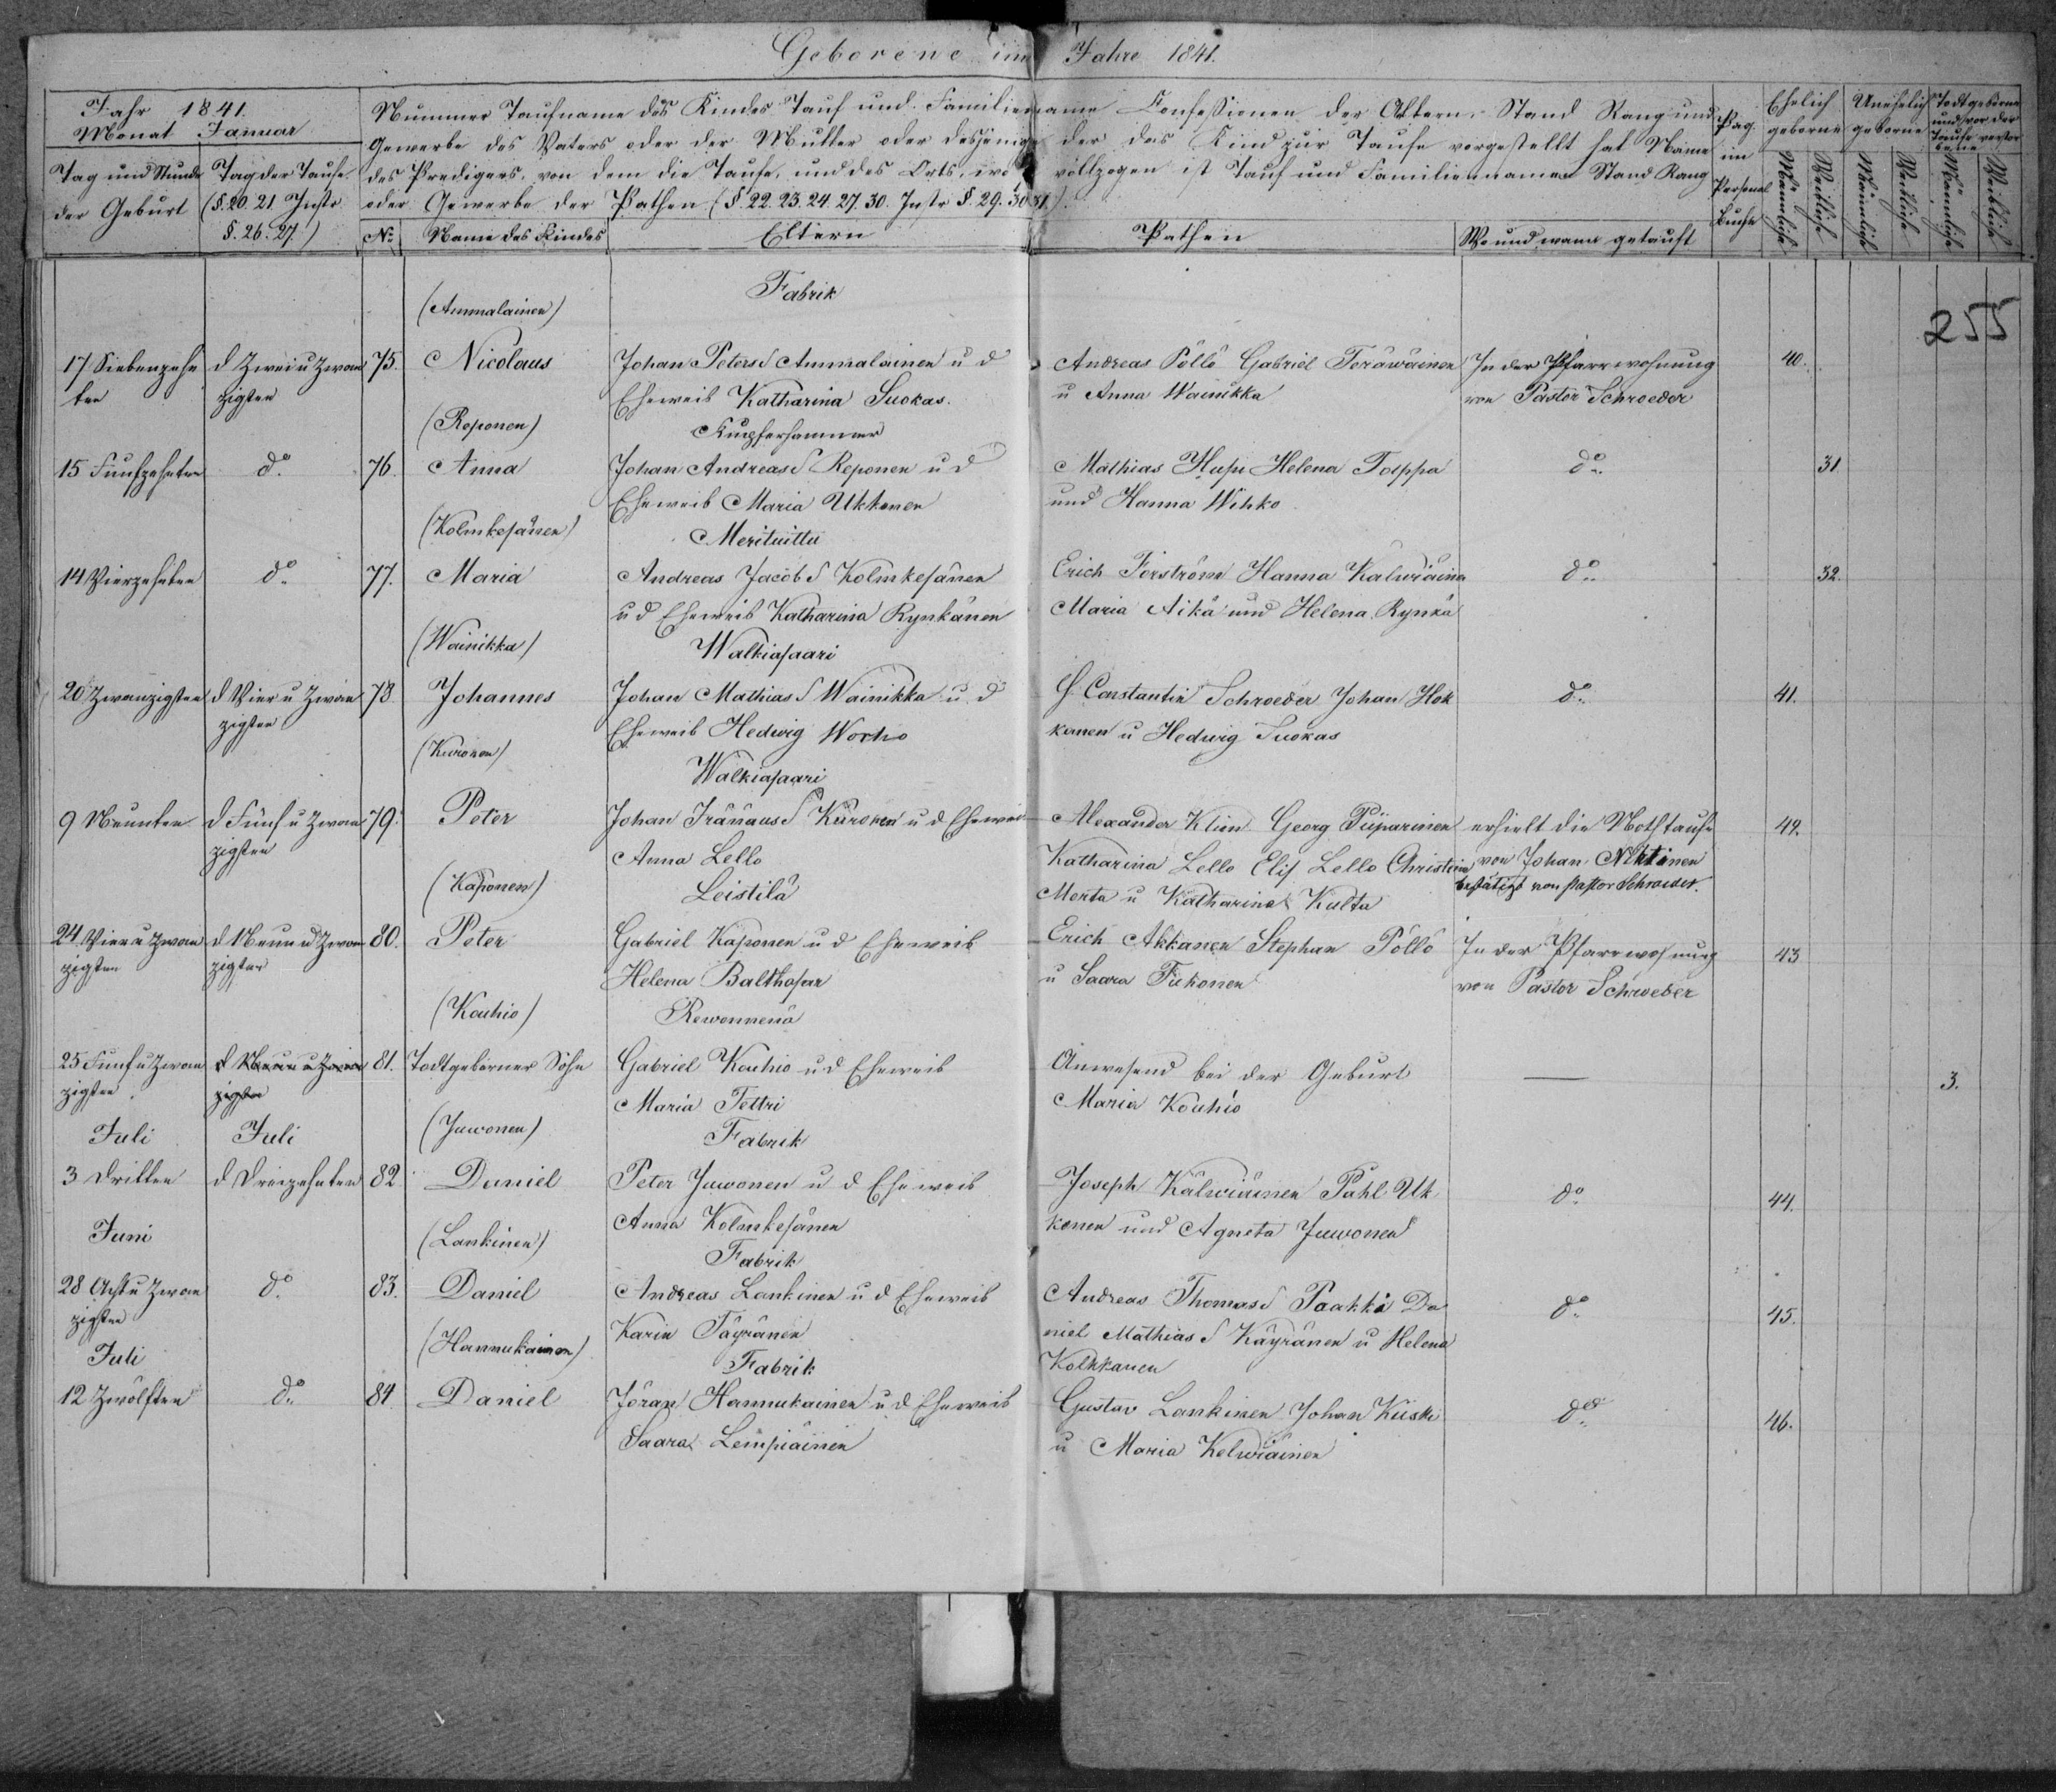 Geborene im Jahre 1841.
Jahr 1841.
Monat Januar
Tag und Stunde der Geburt
Tag der Taufe (§. 20. 21. Instr. §. 26. 27.)
Nummer Taufname des Kindes Tauf und Familienname Confessionen der Altern, Stand Rang und
Gewerbe des Vaters oder der Mutter oder desjenigen der das Kind zur Taufe vorgestellt hat Name
des Predigers, von dem die Taufe, und des Orts, wo vollzogen ist Tauf und Familiennamen Stand Rang
oder Gewerbe der Pathen (§. 22. 23. 24. 27. 30. Instr §. 29. 30 31.)
No. Name des Kindes Eltern Pathen Wo und wann getauft
Pag. im Personal Buche
Ehelich geborne
Unehelich geborne
Todtgeborne und vor der Taufe verstorbene
Männlich Weiblich Männlich Weiblich Männlich Weiblich
255
(Ammalainen) Fabrik
17 Siebenzehn d Zwei u Zwan 75. Nicolaus Johan Peters S Ammalainen u d Andreas Pöllö Gabriel Teräwäinen In der Pfarrwohnung 40.
ten zigsten Eheweib Katharina Suokas. u Anna Wainikka von Pastor Schroeder
(Reponen) Kupferhammer
15 Funfzehnten do. 76. Anna Johan Andreas S Reponen u d Mathias Hupi Helena Torppa do. 31.
Eheweib Maria Ukkonen und Hanna Wihko
(Kolmkesänen) Merituittu
14 Vierzehnten do. 77. Maria Andreas Jacob S Kolmkesänen Erich Forström Hanna Kälwiäinen do. 32.
u d Eheweib Katharina Rynkänen Maria Aikä und Helena Rynkä
(Wainikka) Walkiasaari
20 Zwanzigsten d Vier u Zwan 78. Johannes Johan Mathias S Wainikka u d Constantin Schroeder Johan Hok do. 41.
zigsten Eheweib Hedwig Worho kanen u Hedwig Suokas
(Kuronen) Walkiasaari
9 Neunten d Fünf u Zwan 79. Peter Johan Iränäus S Kuronen u d Eheweib Alexander Klim Georg Piiparinen erhielt die Nothtaufe 42.
zigsten Anna Lello Katharina Lello Elis Lello Christina von Johan
(Kaponen) Leistilä Merta u Katharina Kulta bestätigt von Pastor Schroeder.
24. Vier u Zwan d Neun u Zwan 80. Peter Gabriel Kaponen u d Eheweib Erich Akkanen Stephan Pöllö In der Pfarrwohnung 43
zigsten zigsten Helena Balthasar u Saara Tiikonen von Pastor Schroeder
(Kouhio) Rewonnenä
25 Fünf u Zwan d Neun u Zwan 81. Todtgeborner Sohn Gabriel Kouhio u d Eheweib Anwesend bei der Geburt — 3.
zigsten zigsten Maria Tettri Maria Kouhio
Juli Juli (Juwonen) Fabrik
3 Dritten d Dreizehnten 82 Daniel Peter Juwonen u d Eheweib Joseph Kälwiäinen Pahl Uk do. 44.
Anna Kolmkesänen konen und Agneta Juwonen
Juni (Lankinen) Fabrik
28 Acht u Zwan do. 83. Daniel Andreas Lankinen u d Eheweib Andreas Thomas S Paakki Da do. 45.
zigsten Karin Täyränen niel Mathias S Käyränen u Helena
Juli (Hannukainen) Fabrik Kolkkanen
12 Zwölften do. 84 Daniel Jöran Hannukainen u d Eheweib Gustav Lankinen Johan Kiiski do. 46.
Saara Lempiäinen u Maria Kelwiäinen